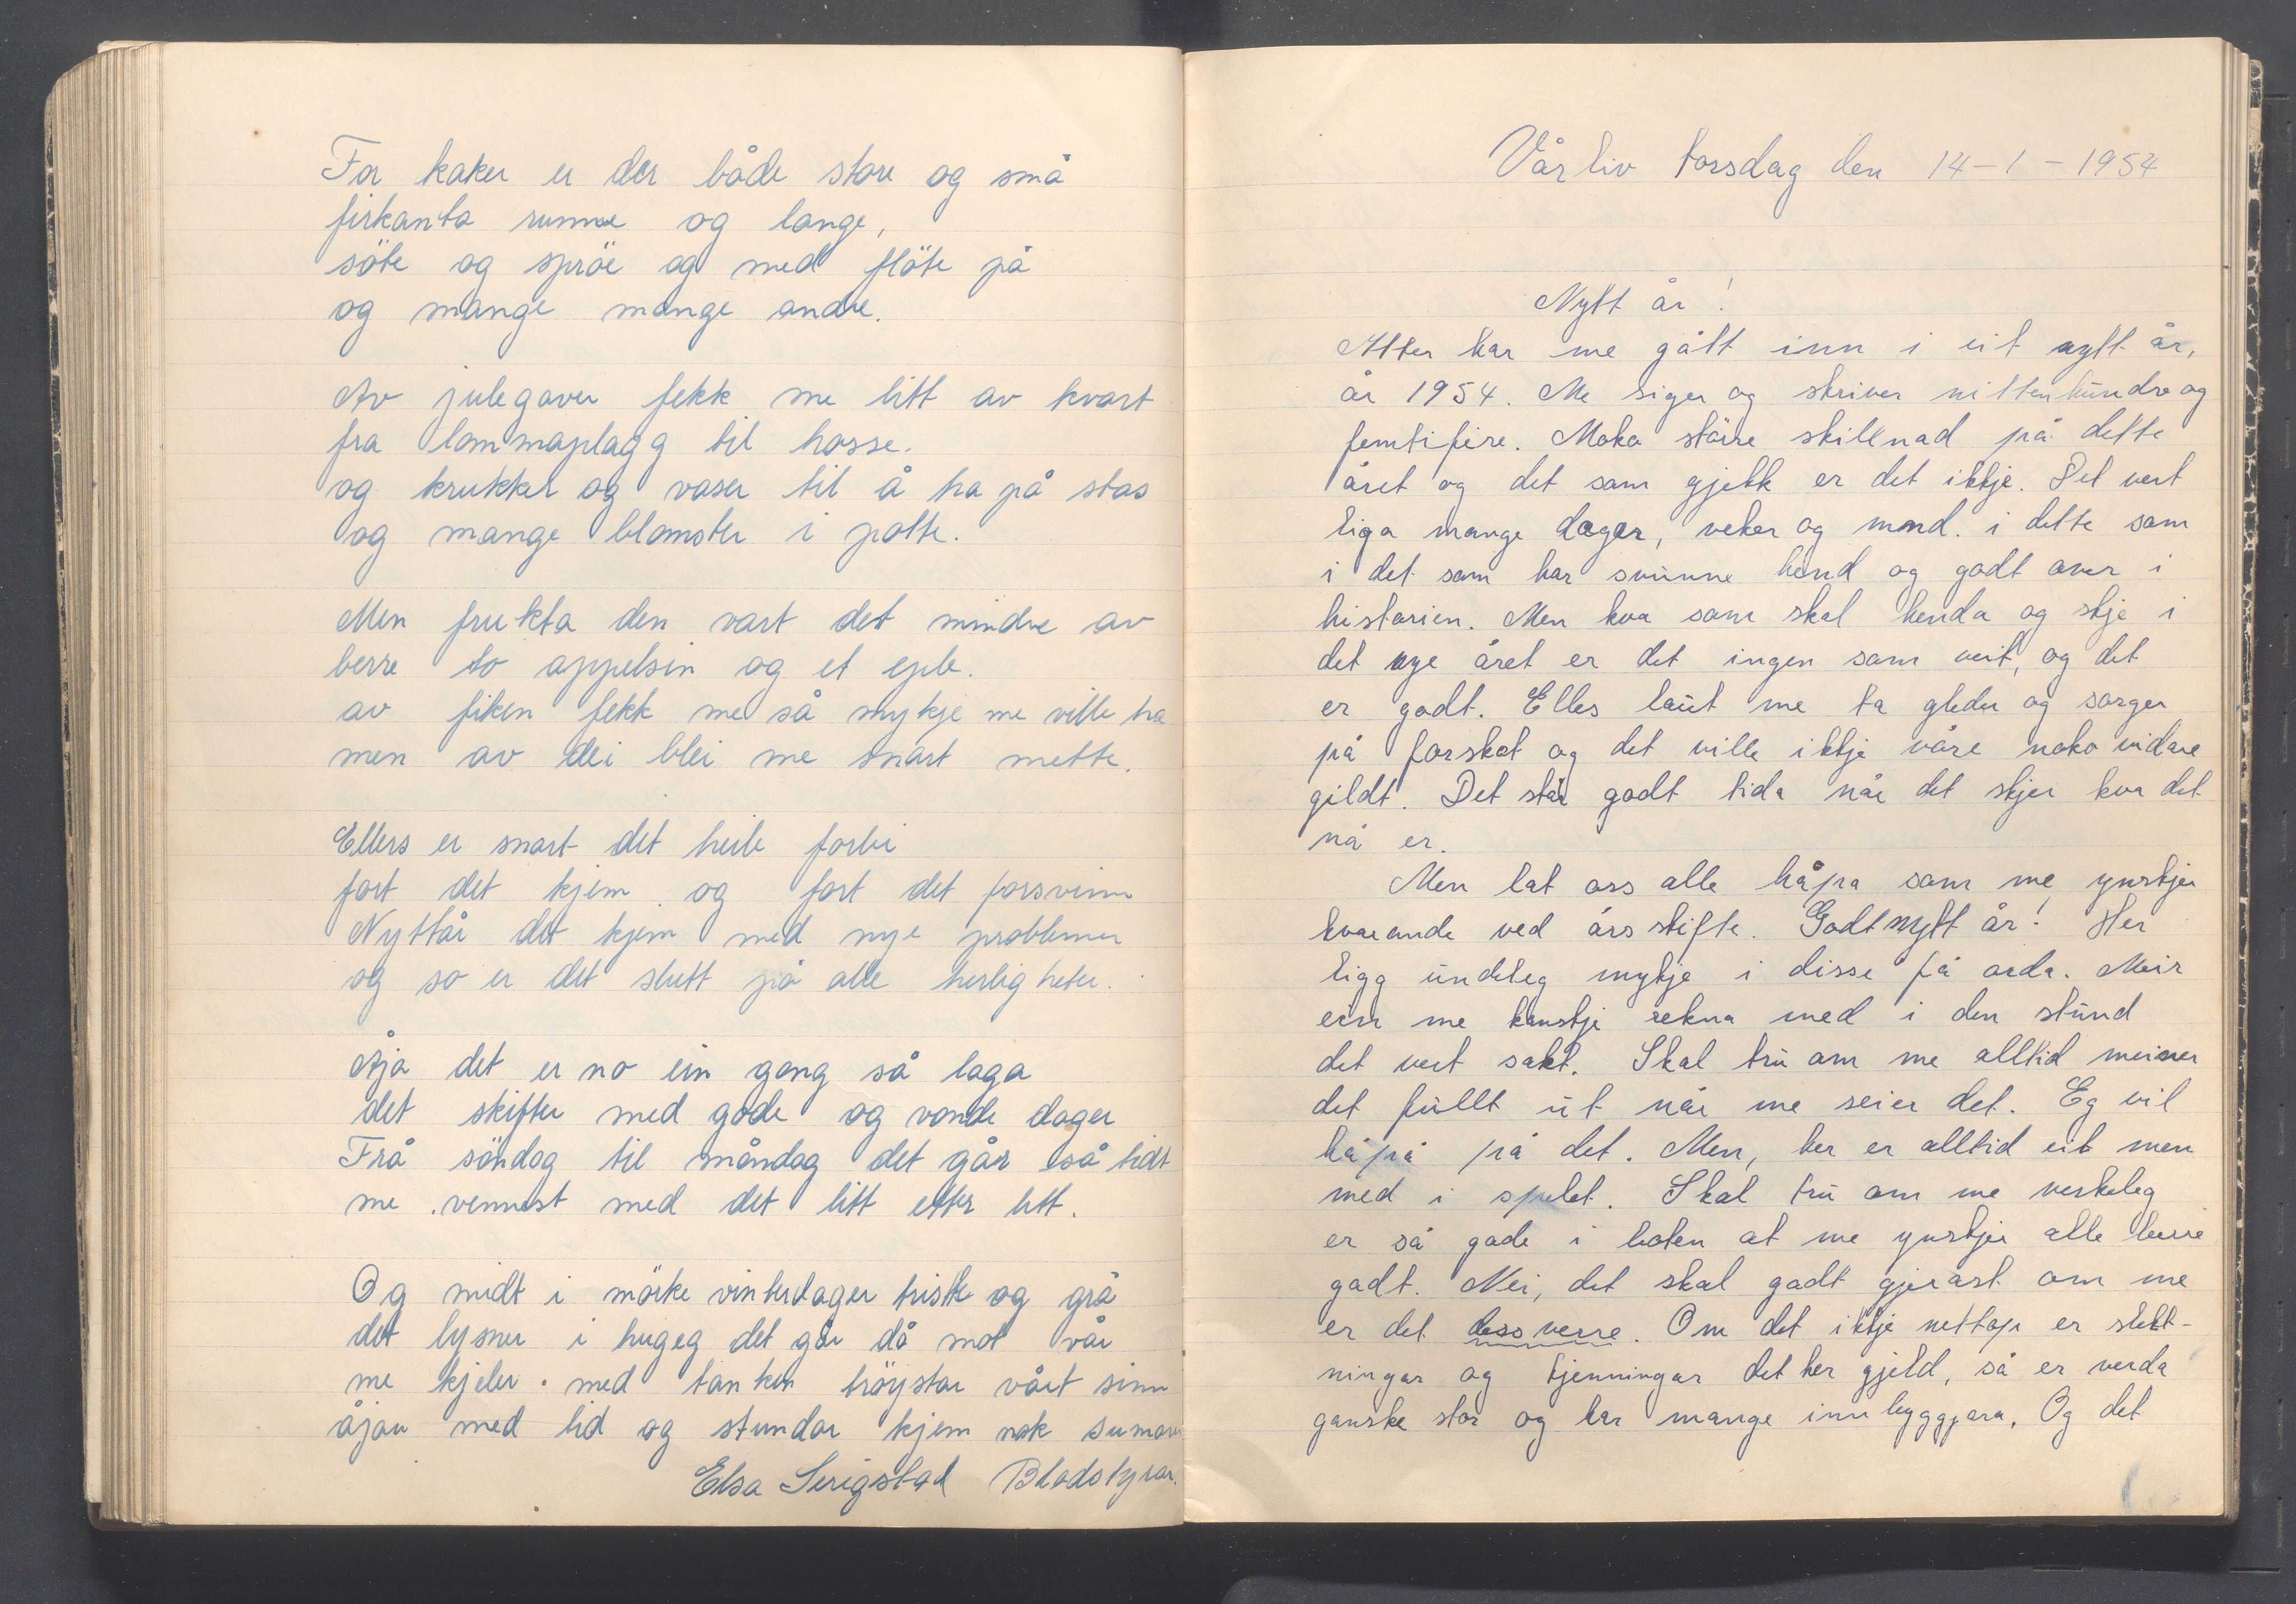 For kaker er der både store og små
firkanta runne og lange,
söte og spröe og med flöte på
og mange mange andre.
Av julegaver fekk me litt av kvart
fra lommaplagg til hosse.
og krukker og vaser til å ha på stas
og mange blomster i potte.
Men frukta den vart det mindre av
berre to appelsin og et eple.
av fiken fekk me så mykje me ville ha
men av dei blei me snart mette.
Ellers er snart det heile forbi
fort det kjem og fort det forsvinn
Nyttår det kjem med nye problemer
og so er det slutt på alle herligheter.
Åja det er no ein gong så laga
det skifter med gode og vonde dager
Frå söndag til måndag det går så tidt
me vennest med det litt etter litt.
Og midt i mörke vinterdager triste og grå
det lysner i hugeg det går då mot vår
me kjeler med tanken tröystar vårt sinn
åjau med tid og stundar kjem nok sumaren
Elsa Serigstad Bladstyrar.
Vår liv torsdag den 14-1-1954
Nytt år!
Atter har me gått inn i eit nytt år,
år 1954. Me siger og skriver nittenhundre og
femtifire. Moko större skillnad på dette
året og det som gjekk er det ikkje. Det vert
liga mange dager, veker og mnd. i dette som
i det som har svunne hend og godt over i
historien. Men kva som skal henda og skje i
det nye året er det ingen som veit, og det
er godt. Elles laut me ta gleder og sorger
på forskot og det ville ikkje våre noko vidare
gildt. Det står godt tida når det skjer kva det
nå er.
Men lat oss alle håpa som me ynskjer
kvarande ved årsskifte. Godt nytt år! Her
ligg undeleg mykje i disse få orda. Meir
enn me kanskje rekna med i den stund
det vert sakt. Skal tru om me alltid meiner
det fullt ut når me seier det. Eg vil
håpå på det. Men, her er alltid eit men
med i spelet. Skal tru om me verkeleg
er så gode i boten at me ynskjer alle berre
godt. Nei, det skal godt gjerast om me
er det dess verre. Om det ikkje nettop er slekt-
ningar og kjenningar det her gjeld, så er verda
ganske stor og har mange innbyggjara. Og det